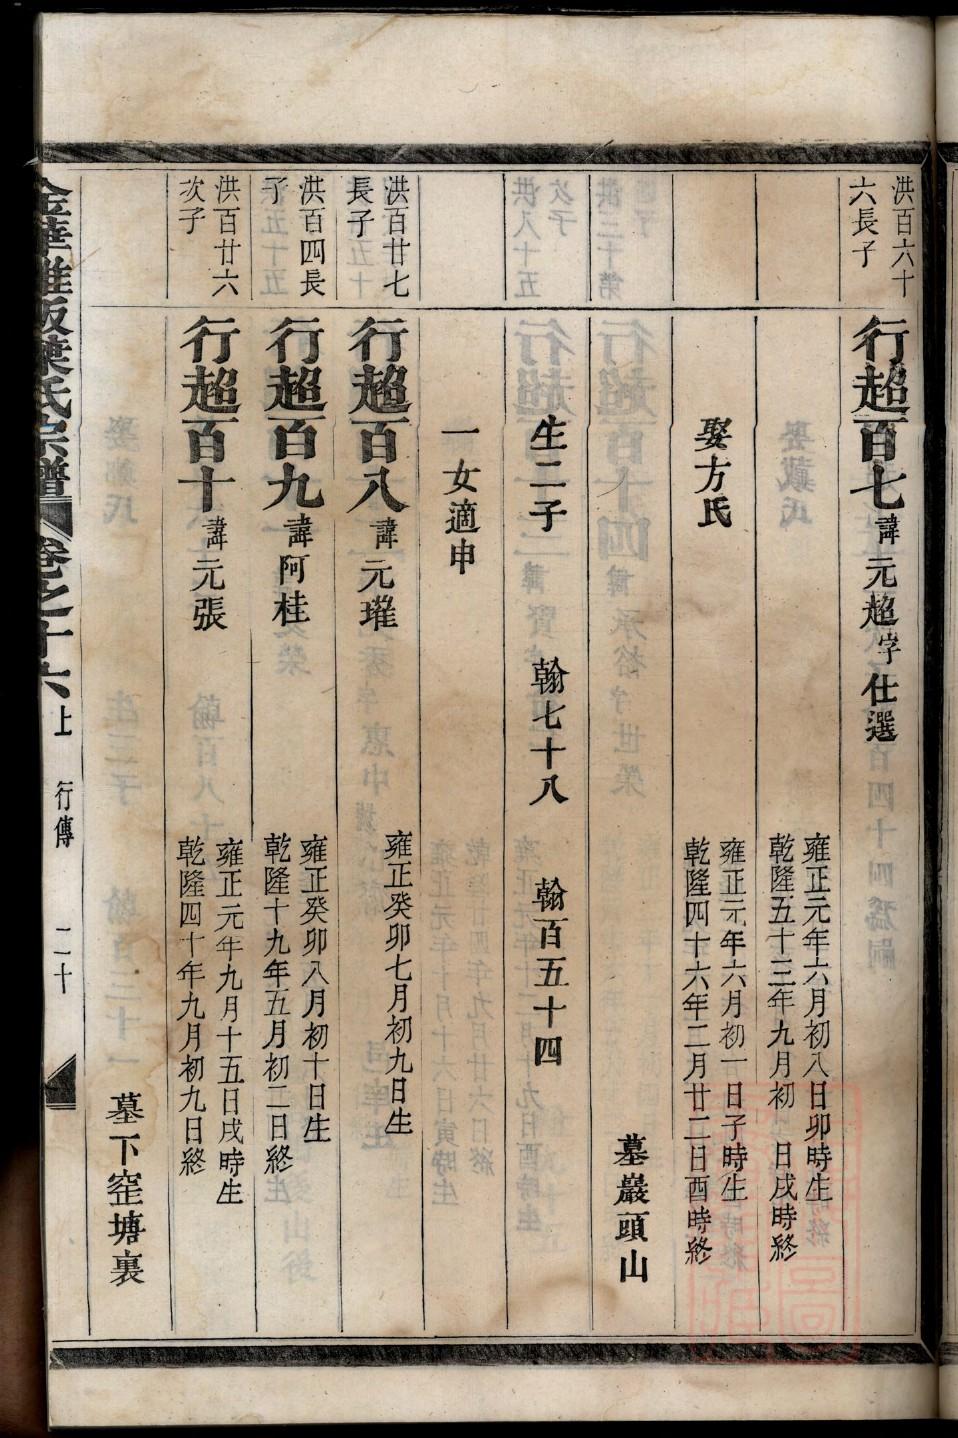 洪百六十
六長子
行超百七諱元超字仕選
雍正元年六月初八日卯時生
乾隆五十三年九月初 日戌時終
娶方氏
雍正元年六月初一日子時生
乾隆四十六年二月廿二日酉時終
墓巖頭山
生二子 翰七十八 翰百五十四
一女適申
洪百廿七
長子
行超百八諱元璀
雍正癸卯七月初九日生
洪百四長
子
行超百九諱阿桂
雍正癸卯八月初十日生
乾隆十九年五月初二日終
洪百廿六
次子
行超百十諱元張
雍正元年九月十五日戌時生
乾隆四十年九月初九日終
墓下窑塘裏
金華雅坂葉氏宗譜 卷之十六上 行傳 二十